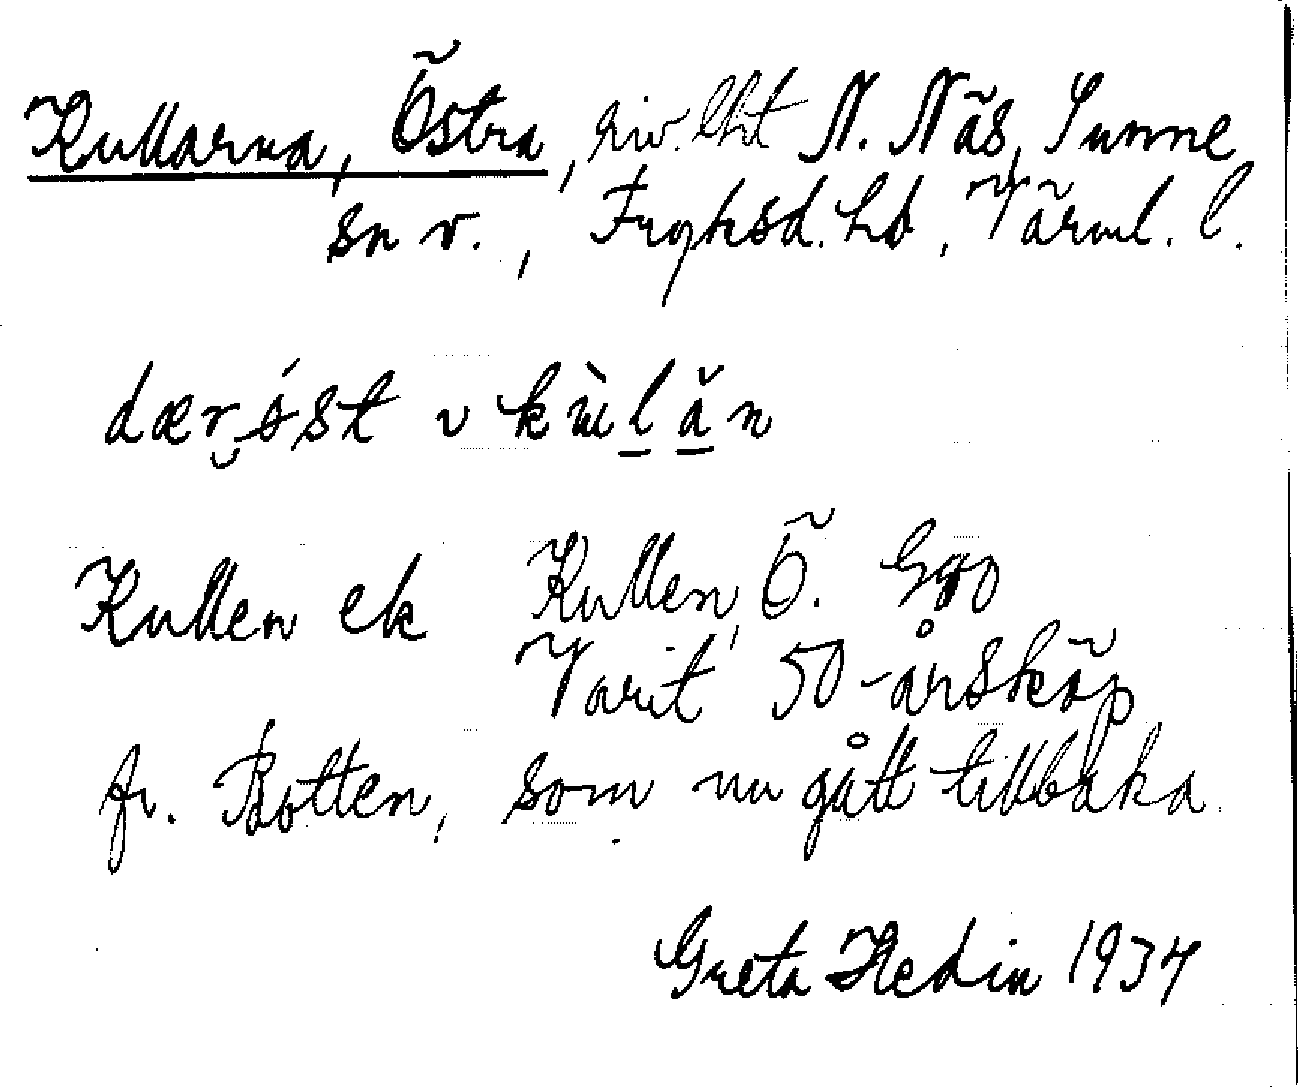 Kullarna, Östra, riv. lht N. Näs, Sunne
sn v., Fryksd. hd, Värml. l.
dær öst v kùlǎn
Kullen ek Kullen, Ö. Ggo
Varit 50-årsköp
fr. Botten, som nu gått tillbaka.
Greta Hedin 1934